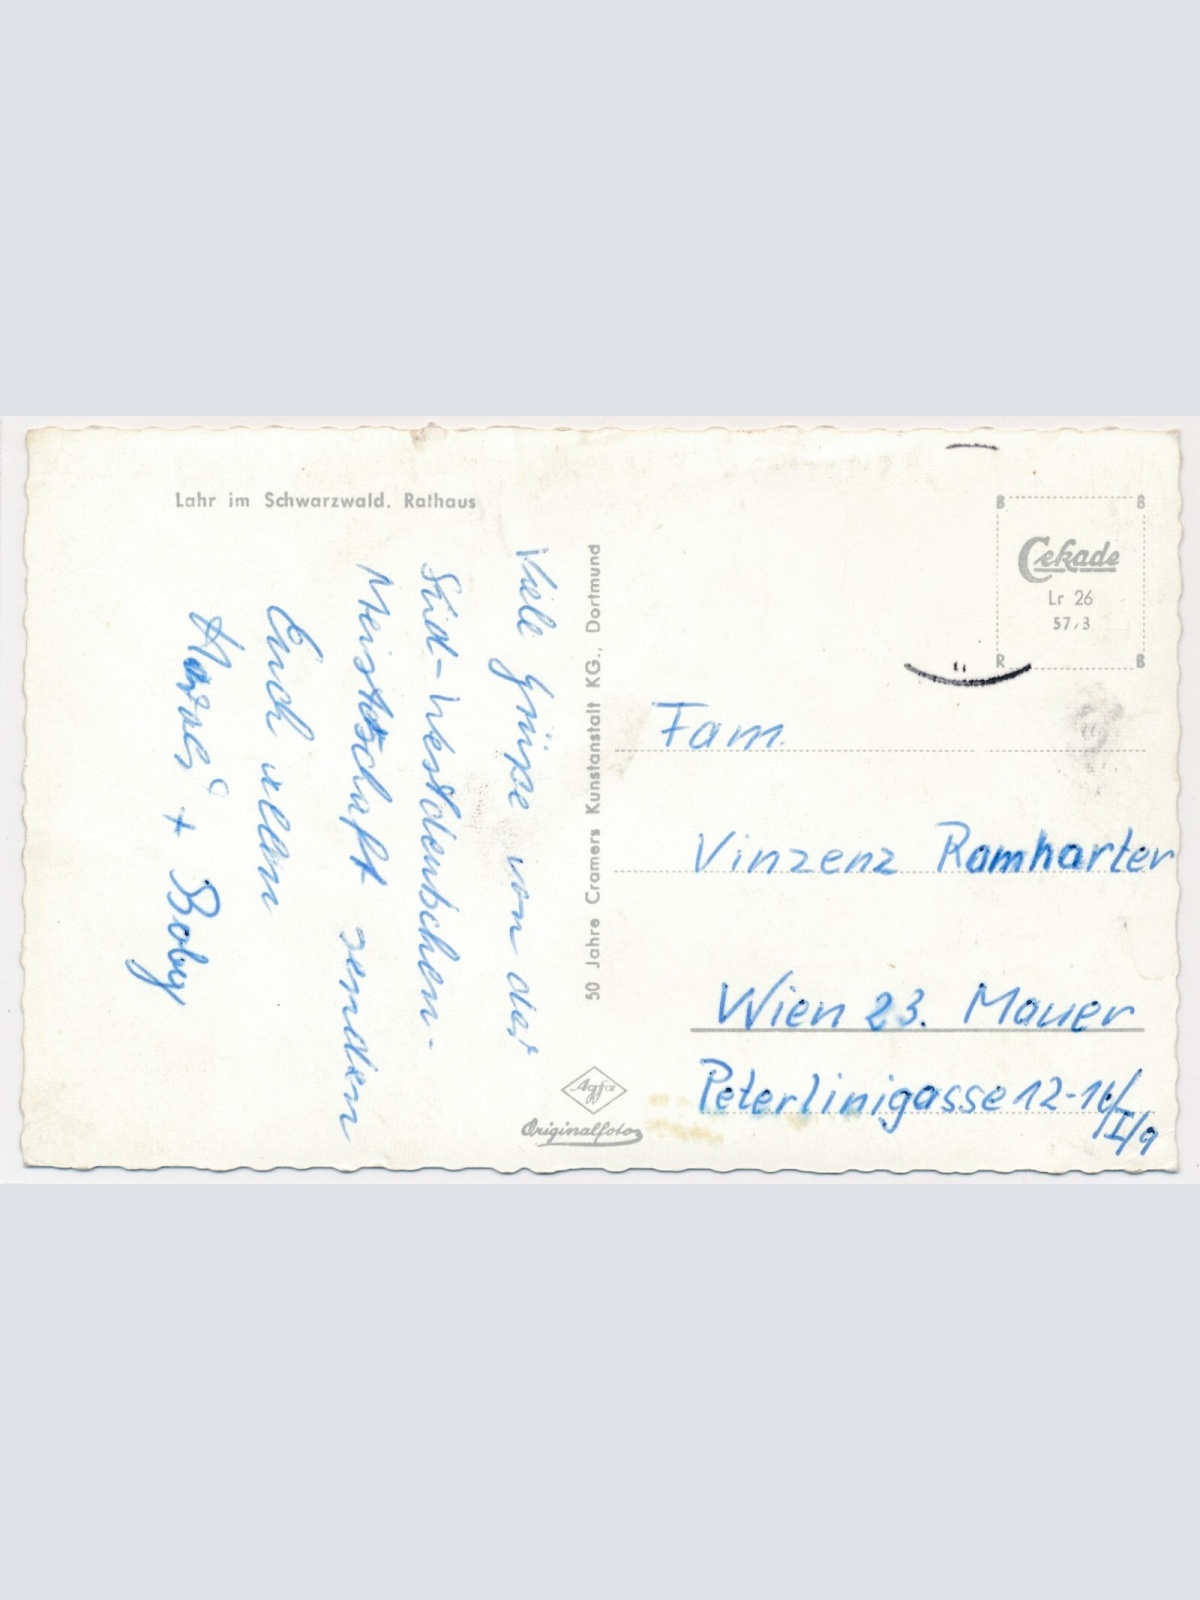 Lahr im Schwarzwald. Rathaus
Viele Grüße von der
Süd-Westdeutschen-
Meistschaft senden
Euch allen
+ Boby
50 Jahre Cramers Kunstanstalt KG., Dortmund
Agfa
Originalfoto
B B
Cekade
Lr 26
57,3
R B
Fam.
Vinzenz Ramharter
Wien 23. Mauer
Peterlinigasse 12-16/
I/9